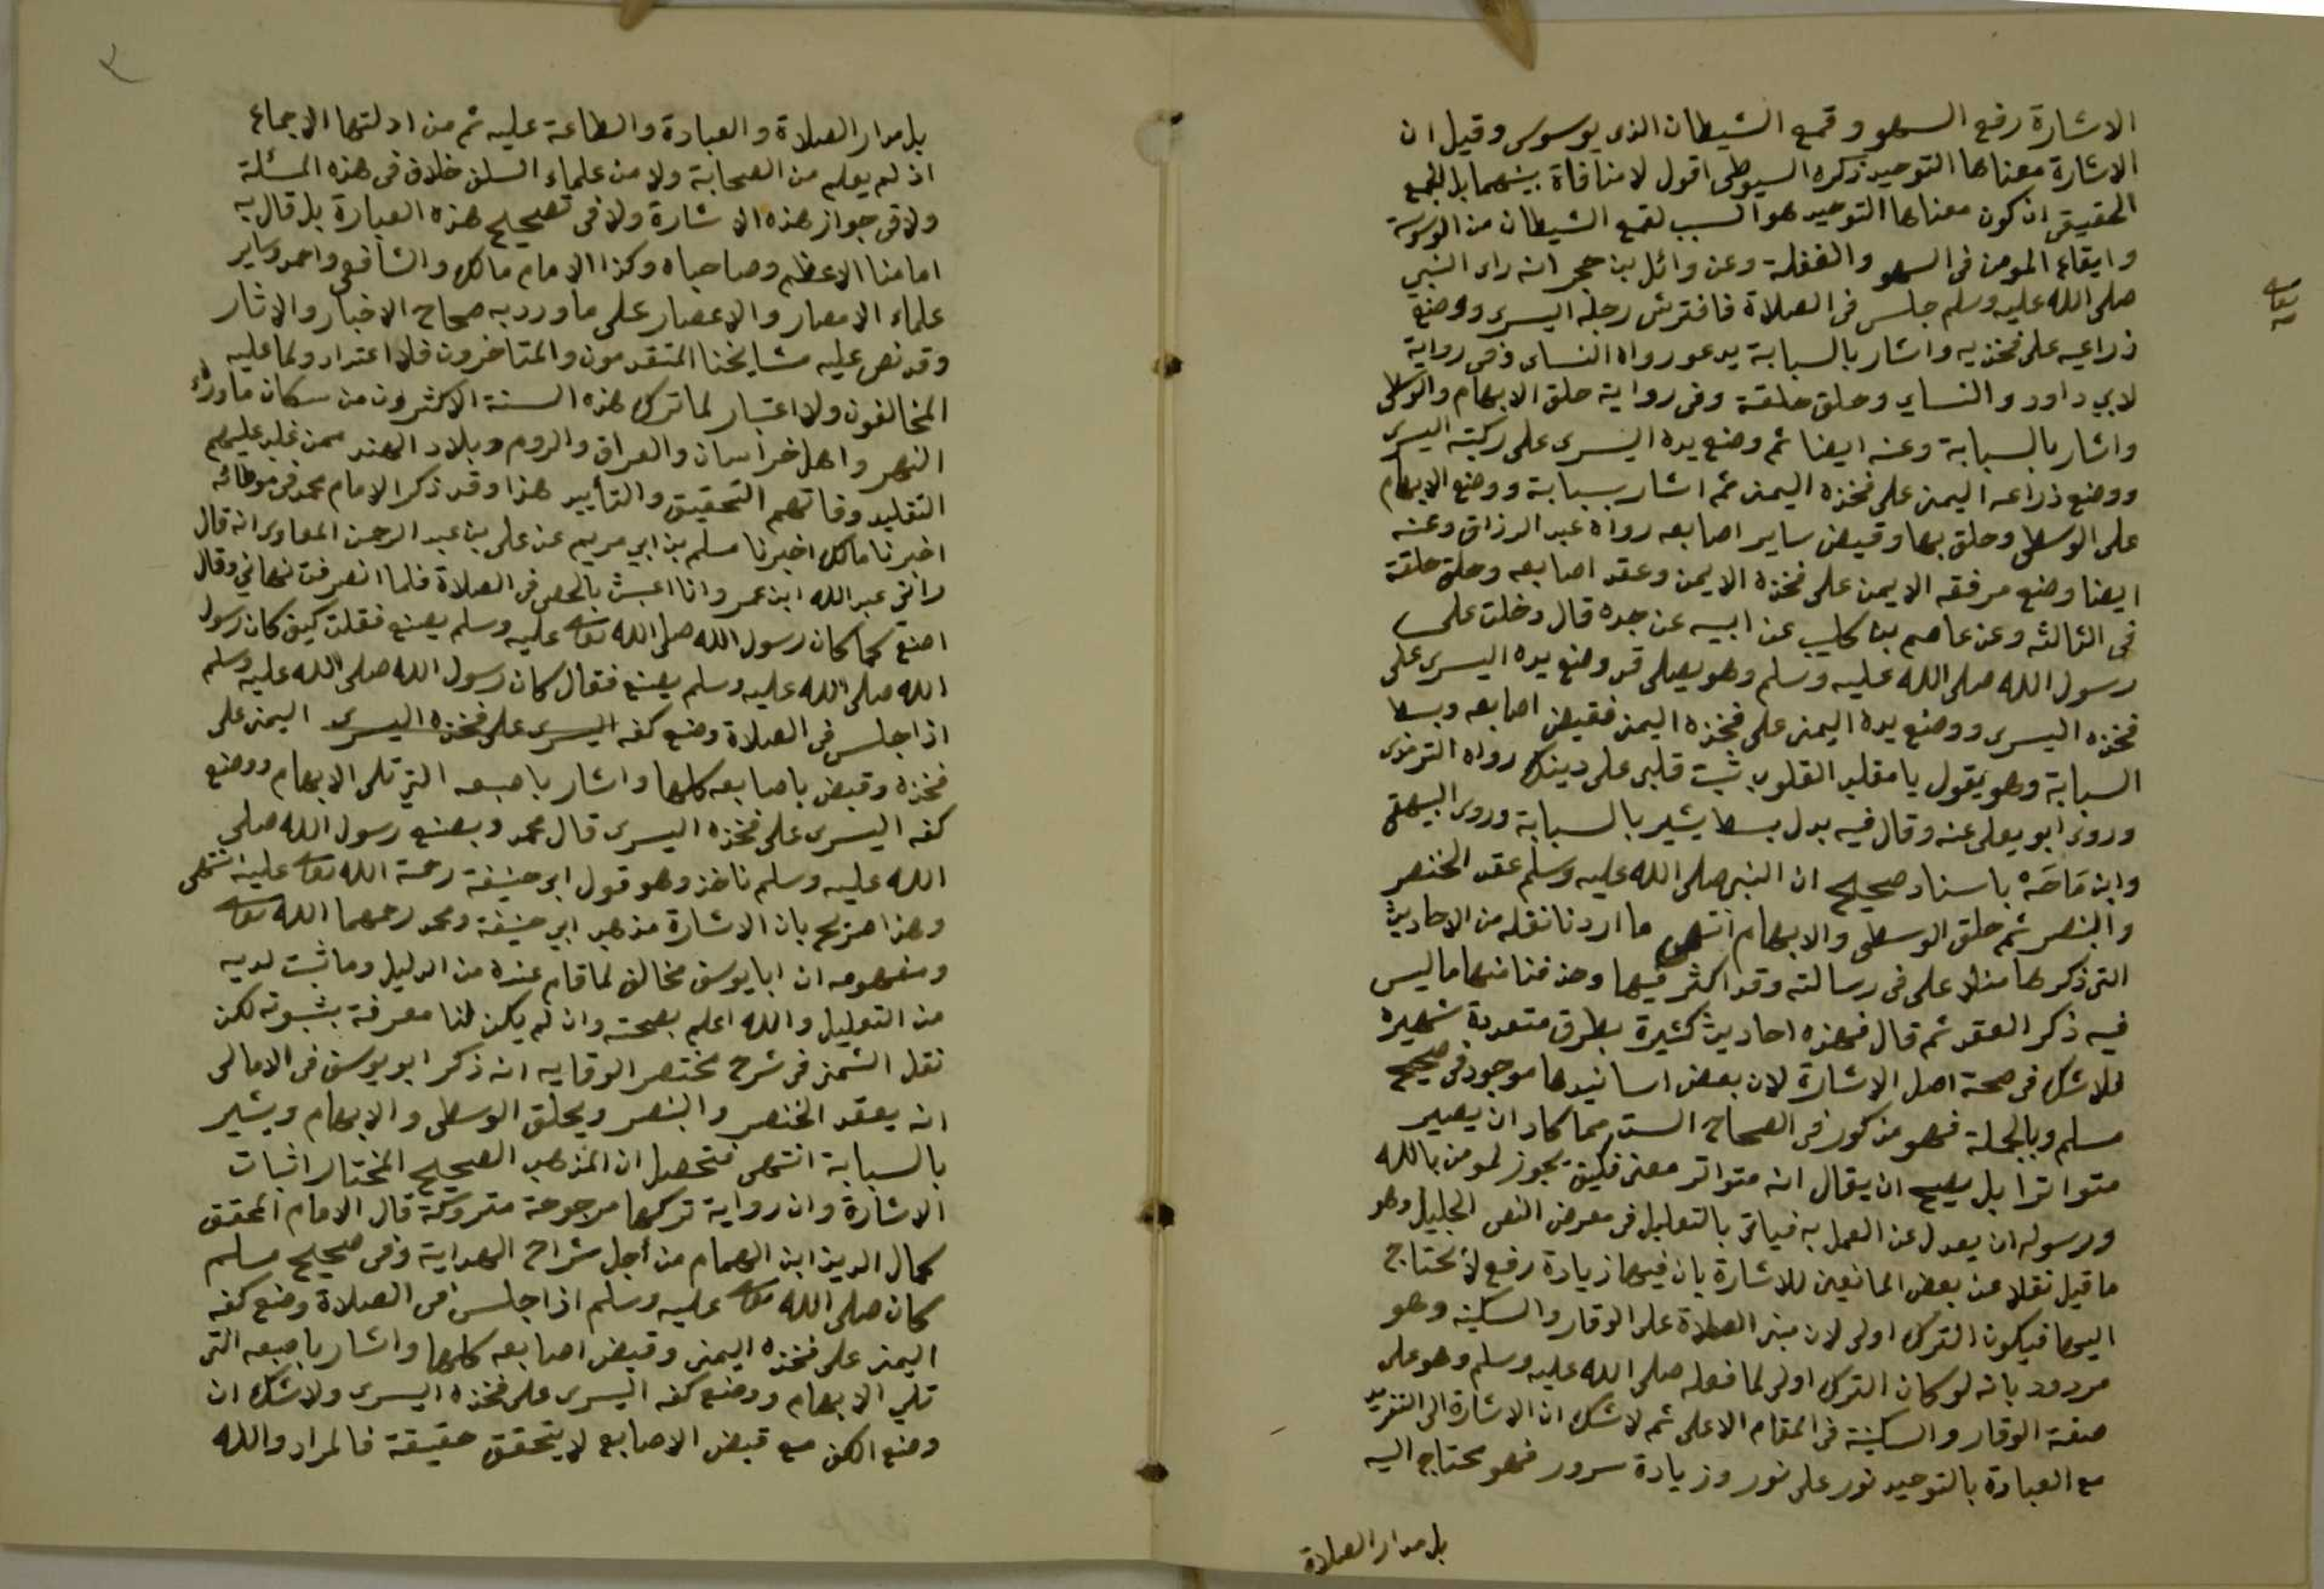 الاشارة رفع السهو وقمع الشيطان الذى يوسوس وقيل ان
الاشارة معناها التوحيد ذكره السيوطى اقول لا منافاة بينهما بل الجمع
الحقيقى ان كون معناها التوحيد هو السبب لقمع الشيطان من الوسوسة
وايقاع المومن فى السهو والغفلة وعن وائل بن حجر انه راى النبي
صلى الله عليه وسلم جلس فى الصلاة فافترش رجله اليسرى ووضع
ذراعيه على فخذيه واشار بالسبابة يدعو رواه النساى وفى رواية
لابي داود والنساي وحلق حلقة وفى رواية حلق الابهام والوسطى
واشار بالسبابة وعنه ايضا ثم وضع يده اليسرى على ركبته اليسرى
ووضع ذراعه اليمنى على فخذه اليمنى ثم اشار بسبابة ووضع الابهام
على الوسطى وحلق بها وقبض ساير اصابعه رواه عبد الرزاق وعنه
ايضا وضع مرفقه الايمن على فخذه الايمن وعقد اصابعه وحلق حلقة
فى الثالثه وعن عاصم بن كليب عن ابيه عن جده قال دخلت على
رسول الله صلى الله عليه وسلم وهو يصلى قد وضع يده اليسرى على
فخذه اليسرى ووضع يده اليمنى على فخذه اليمنى فقبض اصابعه وبسط
السبابة وهو يقول يا مقلب القلوب ثبت قلبى على دينك رواه الترمذى
وروى ابو يعلى عنه وقال فيه بدل بسط يشير بالسبابة وروى البيهقى
وابن ماجه باسناد صحيح ان النبى صلى الله عليه وسلم عقد الخنصر
والبنصر ثم حلق الوسطى والابهام انتهى ما اردنا نقله من الاحاديث
التى ذكرها منلا على فى رسالته وقد اكثر فيها وحذفنا منها ما ليس
فيه ذكر العقد ثم قال فهذه احاديث كثيرة بطرق متعددة شهيرة
فلا شك فى صحة اصل الاشارة لان بعض اسانيدها موجود فى صحيح
مسلم وبالجملة فهو مذكور فى الصحاح الست مما كاد ان يصير
متواترا بل يصح ان يقال انه متواتر معنى فكيف يجوز لمومن بالله
ورسوله ان يعدل عن العمل به فياتى بالتعليل فى معرض النص الجليل وهو
ما قيل نقلا عن بعض المانعين للاشارة بان فيها زيادة رفع لا يحتاج
اليها فيكون الترك اولى لان مبنى الصلاة على الوقار والسكينه وهو
مردود بانه لو كان الترك اولى لما فعله صلى الله عليه وسلم وهو على
صفة الوقار والسكينة فى المقام الاعلى ثم لا شك ان الاشارة الى التفريد
مع العبادة بالتوحيد نور على نور وزيادة سرور فهو محتاج اليه
بل مدار الصلاة
بل مدار الصلاة والعبادة والطاعة عليه ثم من ادلتها الاجماع
اذ لم يعلم من الصحابة ولا من علماء السلف خلاف فى هذه المسئلة
ولا فى جواز هذه الاشارة ولا فى تصحيح هذه العبارة بل قال به
امامنا الاعظم وصاحباه وكذا الامام مالك والشافعى واحمد وساير
علماء الامصار والاعصار على ما ورد به صحاح الاخبار والاثار
وقد نص عليه مشايخنا المتقدمون والمتاخرون فلا اعتداد ولما عليه
المخالفون ولا اعتبار لما ترك هذه السنة الاكثرون من سكان ماوراء
النهر واهل خراسان والعراق والروم وبلاد الهند ممن غلب عليهم
التقليد وفاتهم التحقيق والتأييد هذا وقد ذكر الامام محمد فى موطائه
اخبرنا مالك اخبرنا مسلم بن ابي مريم عن على بن عبد الرحمن المعاوى انه قال
رانى عبد الله ابن عمر وانا اعبث بالحصى فى الصلاة فلما انصرفت نهاني وقال
اصنع كما كان رسول الله صلى الله تعالى عليه وسلم يصنع فقلت كيف كان رسول
الله صلى الله عليه وسلم يصنع فقال كان رسول الله صلى الله عليه وسلم
اذا جلس فى الصلاة وضع كفه اليسرى على فخذه اليسرى اليمنى على
فخذه وقبض باصابعه كلها واشار باصبعه التى تلى الابهام ووضع
كفه اليسرى على فخذه اليسرى قال محمد وبصنع رسول الله صلى
الله عليه وسلم ناخذ وهو قول ابى حنيفة رحمة الله تعالى عليه انتهى
وهذا صريح بان الاشارة مذهب ابي حنيفة ومحمد رحمهما الله تعالى
ومفهومه ان ابا يوسف مخالف لما قام عنده من الدليل وما ثبت لديه
من التعليل والله اعلم بصحته وان لم يكن لنا معرفة بثبوته لكن
نقل الشمنى فى شرح مختصر الوقايه انه ذكر ابو يوسف فى الامالى
انه يعقد الخنصر والبنصر ويحلق الوسطى والابهام ويشير
بالسبابة انتهى فتحصل ان المذهب الصحيح المختار اثبات
الاشارة وان رواية تركها مرجوحة متروكة قال الامام المحقق
كمال الدين ابن الهمام من أجل شراح الهداية وفى صحيح مسلم
كان صلى الله تعالى عليه وسلم اذا جلس فى الصلاة وضع كفه
اليمنى على فخذه اليمنى وقبض اصابعه كلها واشار باصبعه التى
تلى الابهام ووضع كفه اليسرى على فخذه اليسرى ولا شك ان
وضع الكف مع قبض الاصابع لا يتحقق حقيقة فالمراد والله